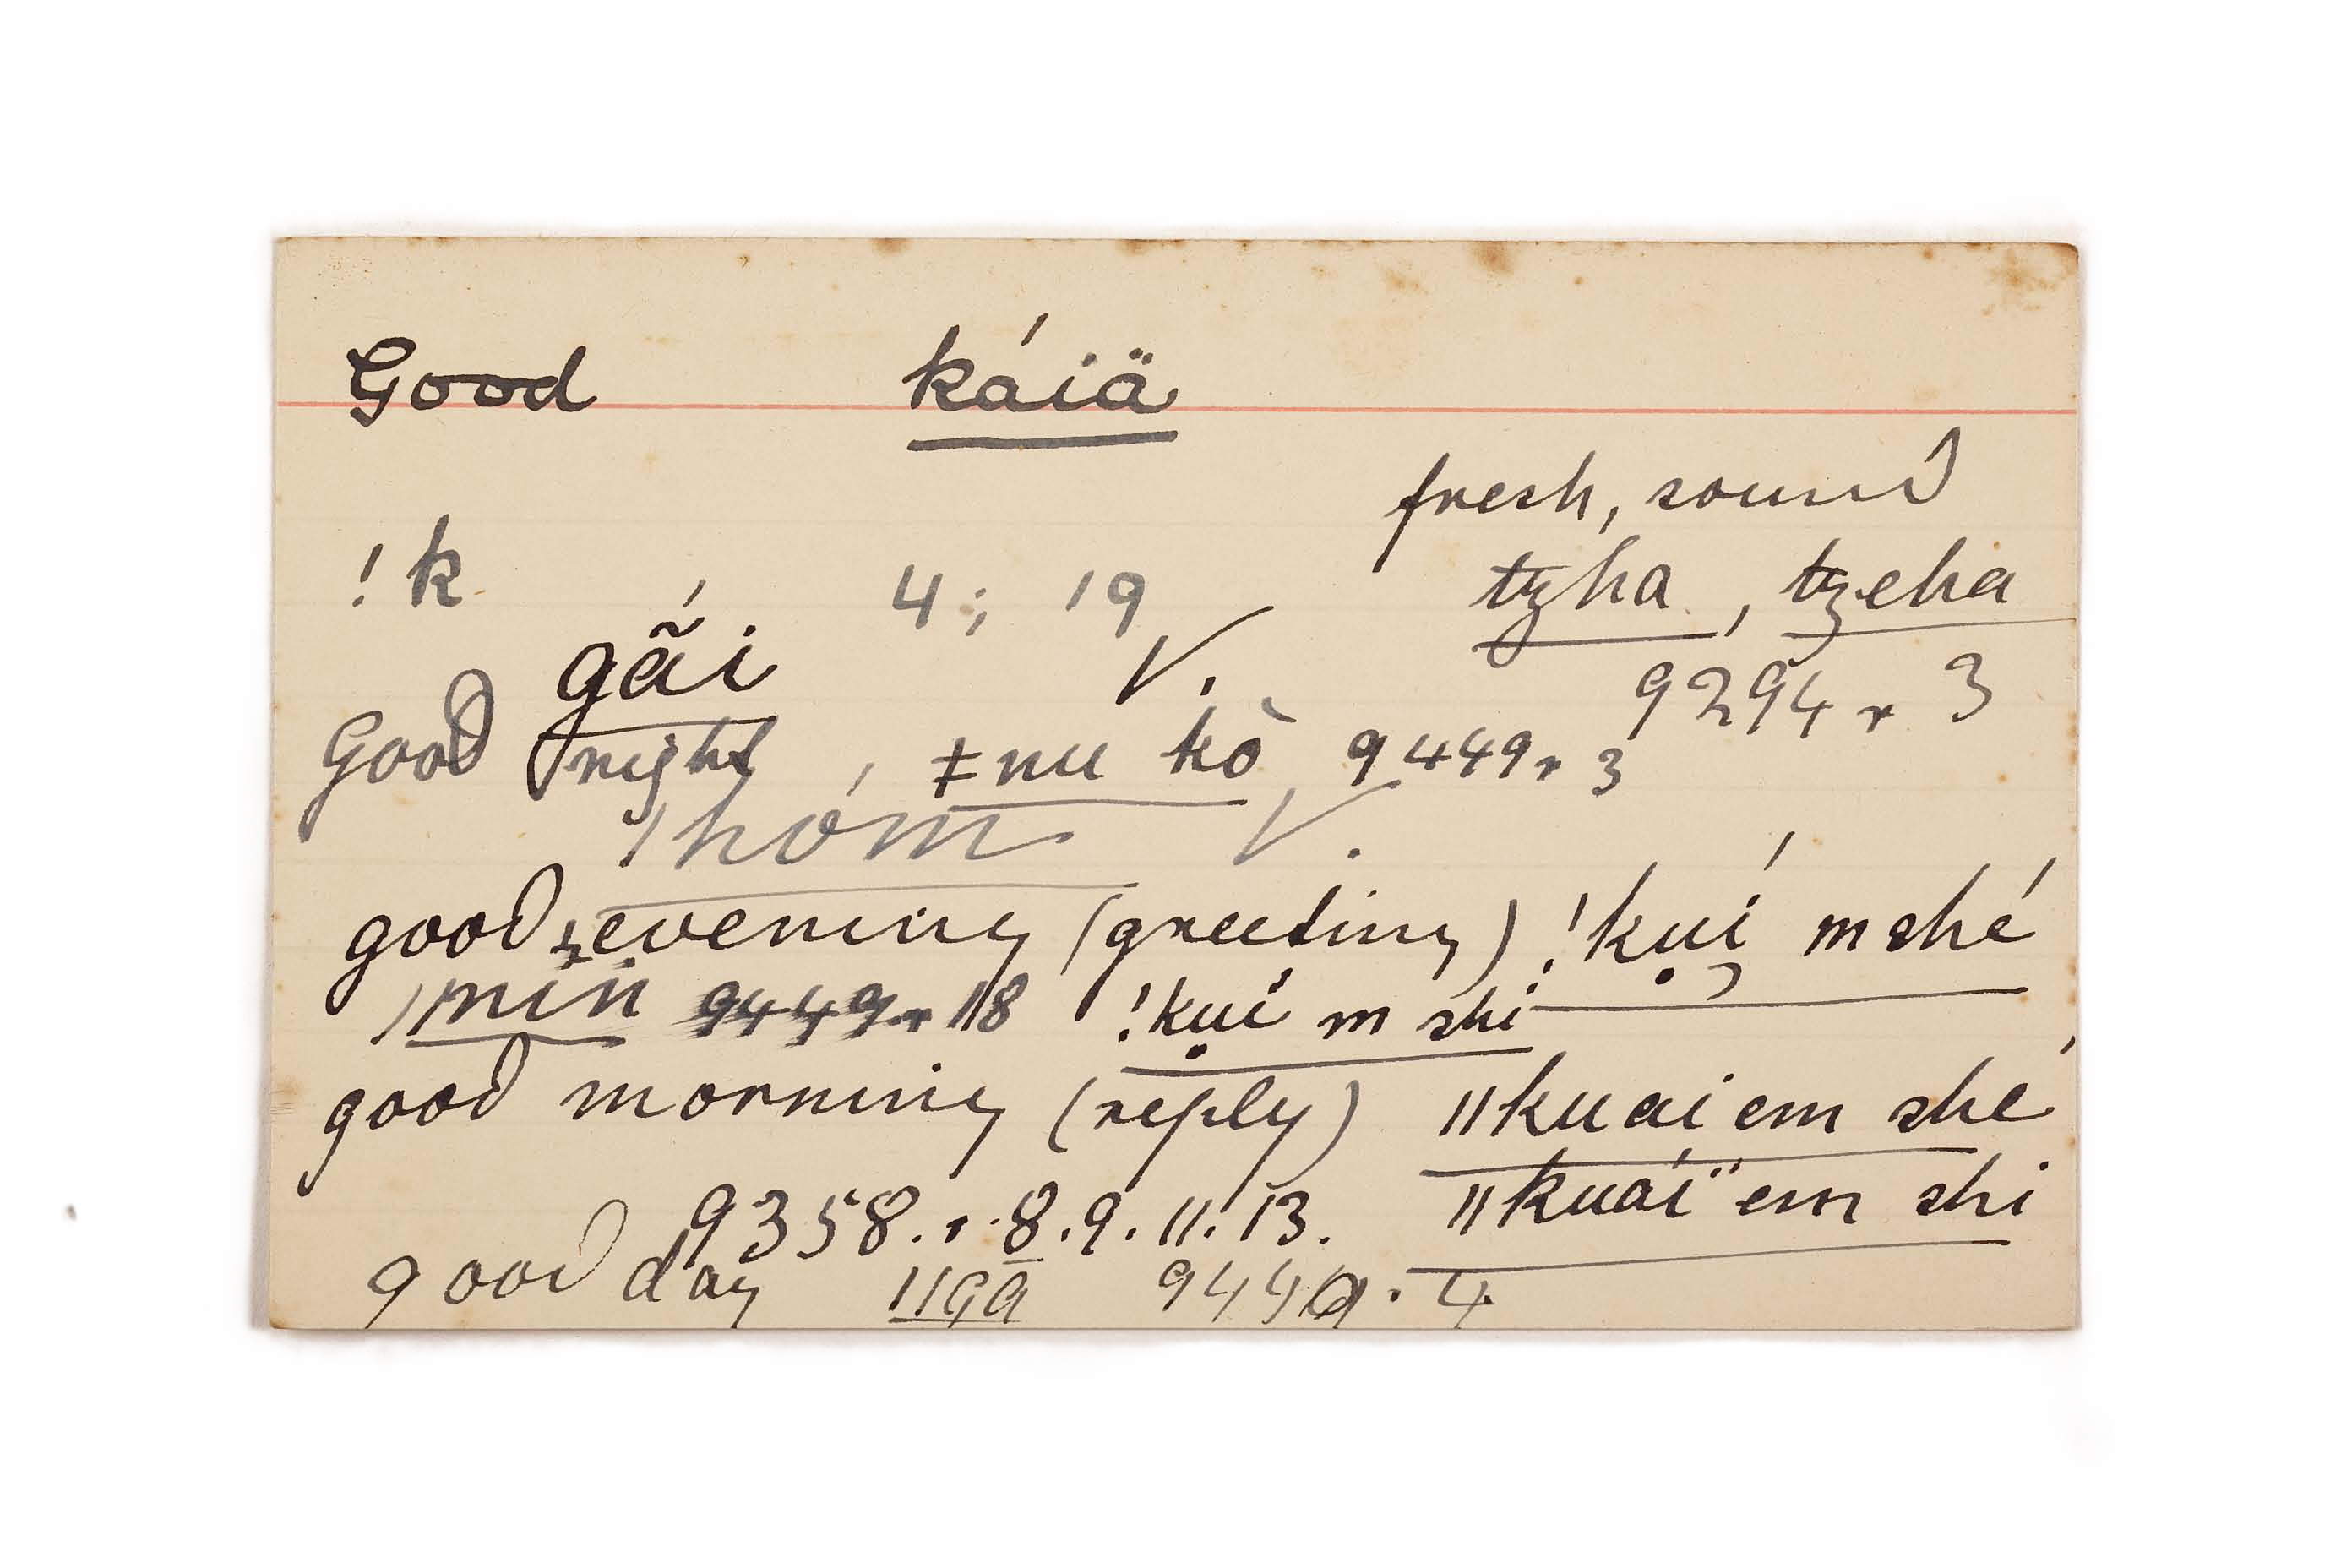 Good káiä
fresh, sound
!k 4; 19 tzha, tzeha
gãi V. 9294 r 3
Good night, ǂnu kò 9449 r 3
|hóm V.
good evening (greeting) !kuí mshé
|min 9449 r 18 !kui m shi
good morning (reply) ǁkuai em she
9358. r. 8. 9. 11. 13. ǁkuáï em shi
good day ǁga 9449. 4